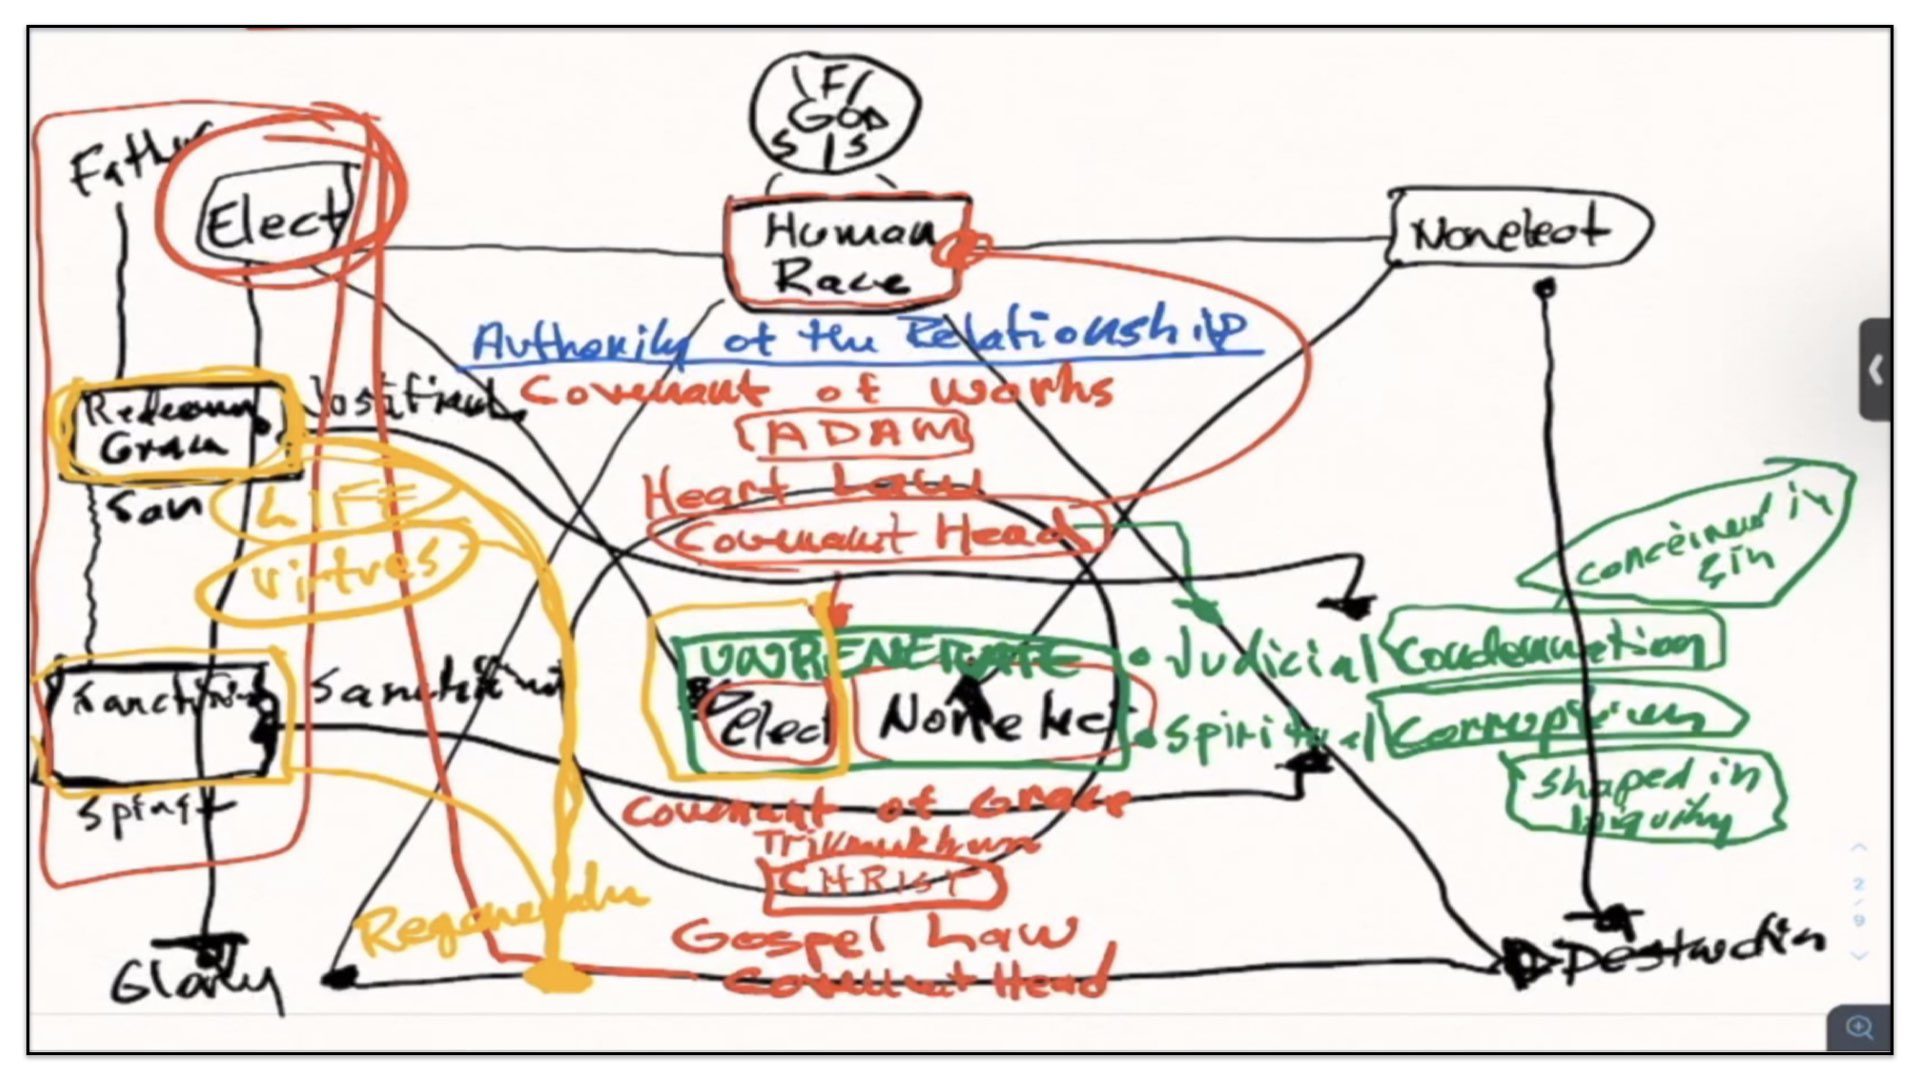 F
GOD
S S
Father
Elect
Human
Race
Nonelect
Authority of the Relationship
Justified
Covenant of works
ADAM
Heart Law
Covenant Head
Son
LIFE
Virtues
conceived in
sin
UNREGENERATE
Judicial Condemnation
Elect
Spiritual Corruption
shaped in
Iniquity
Spirit
Covenant of Grace
CHRIST
Gospel Law
Covenant Head
Glory
Destruction
2/9